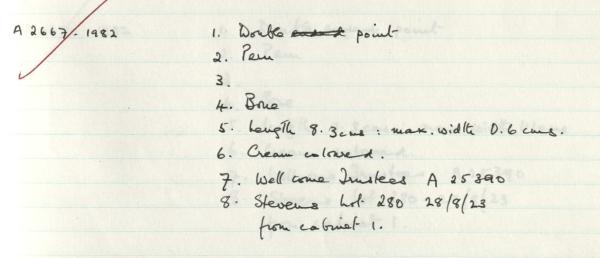 A 2667-1982 1. Double point
2. Peru
3.
4. Bone
5. Length 8.3cms. max. width 0.6 cms.
6. Cream coloured.
7. Wellcome Trustees A 25390
8. Stevens Lot 280 28/8/23
from cabinet 1.